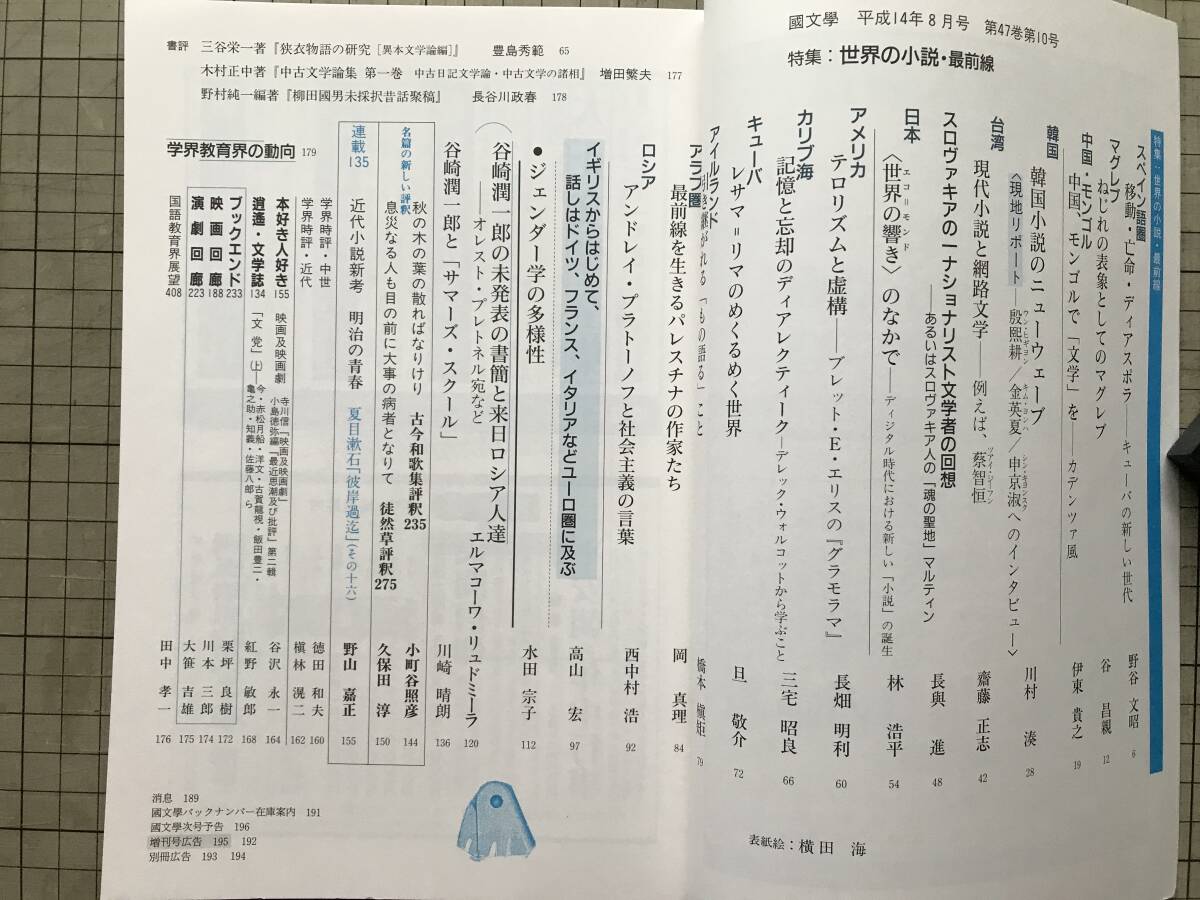 國文學　平成14年8月号　第47巻第10号
特集：世界の小説・最前線
特集：世界の小説・最前線
スペイン語圏
移動・亡命・ディアスポラ　キューバの新しい世代　野谷　文昭　6
マグレブ
ねじれの表象としてのマグレブ　谷　昌親　12
中国・モンゴル
中国、モンゴルで「文学」を――カデンツァ風　伊東　貴之　19
韓国
韓国小説のニューウェーブ　川村　湊　28
〈現地リポート―殷熙耕／金英夏／申京淑へのインタビュー〉
ウン・ヒギョン　キム・ヨンハ　シン・キョンスク
台湾
現代小説と網路文学――例えば、蔡智恒　齋藤　正志　42
ツアイ・ジーフン
スロヴァキアの一ナショナリスト文学者の回想　長與　進　48
――あるいはスロヴァキア人の「魂の聖地」マルティン
日本
〈世界の響き〉のなかで――ディジタル時代における新しい「小説」の誕生　林　浩平　54
エコー＝モンド
アメリカ
テロリズムと虚構――ブレット・E・エリスの『グラモラマ』　長畑　明利　60
カリブ海
記憶と忘却のディアレクティーク―デレック・ウォルコットから学ぶこと　三宅　昭良　66
キューバ
レサマ＝リマのめくるめく世界　旦　敬介　72
アイルランド
引き継がれる「もの語る」こと　橋本　槇矩　79
アラブ圏
最前線を生きるパレスチナの作家たち　岡　真理　84
ロシア
アンドレイ・プラトーノフと社会主義の言葉　西中村　浩　92
イギリスからはじめて、
話しはドイツ、フランス、イタリアなどユーロ圏に及ぶ　高山　宏　97
●ジェンダー学の多様性　水田　宗子　112
谷崎潤一郎の未発表の書簡と来日ロシア人達　エルマコーワ・リュドミーラ　120
――オレスト・プレトネル宛など
谷崎潤一郎と「サマーズ・スクール」　川崎　晴朗　136
名篇の新しい評釈
秋の木の葉の散ればなりけり　古今和歌集評釈235　小町谷照彦　144
息災なる人も目の前に大事の病者となりて　徒然草評釈275　久保田　淳　150
連載135
近代小説新考　明治の青春　夏目漱石「彼岸過迄」（その十六）　野山　嘉正　155
学界時評・中世　徳田　和夫　160
学界時評・近代　槇林　滉二　162
本好き人好き155　映画及映画劇　寺川信「映画及映画劇」　小島徳弥編「最近思潮及び批評」第二輯　谷沢　永一　164
逍遙・文学誌134　「文党」（上）―今・赤松月船・洋文・古賀龍視・飯田豊二・亀之助・知義・佐藤八郎ら　紅野　敏郎　168
ブックエンド233　栗坪　良樹　172
映画回廊188　川本　三郎　174
演劇回廊223　大笹　吉雄　175
国語教育界展望408　田中　孝一　176
書評　三谷栄一著『狭衣物語の研究［異本文学論編］』　豊島秀範　65
木村正中著『中古文学論集　第一巻　中古日記文学論・中古文学の諸相』　増田繁夫　177
野村純一編著『柳田國男未採択昔話聚稿』　長谷川政春　178
学界教育界の動向　179
消息　189
國文學バックナンバー在庫案内　191
國文學次号予告　196
増刊号広告　195　192
別冊広告　193　194
表紙絵：横田　海